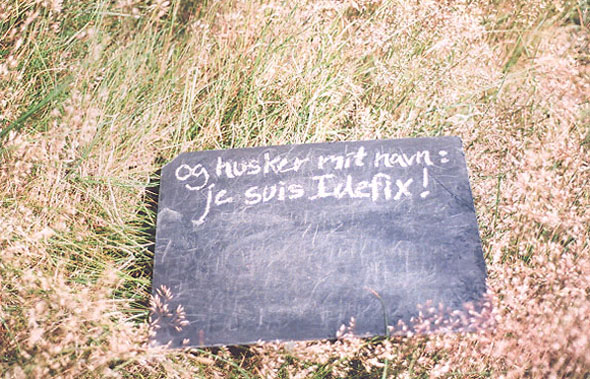 og husker mit navn:
je suis Idefix!